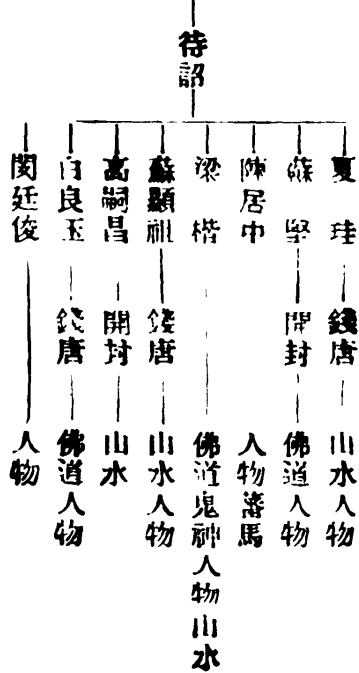 待詔
夏珪 錢唐 山水人物
蘇堅 開封 佛道人物
陳居中 人物蕃馬
梁楷 佛道鬼神人物山水
蘇顯祖 錢唐 山水人物
高嗣昌 開封 山水
白良玉 錢唐 佛道人物
閔廷俊 人物